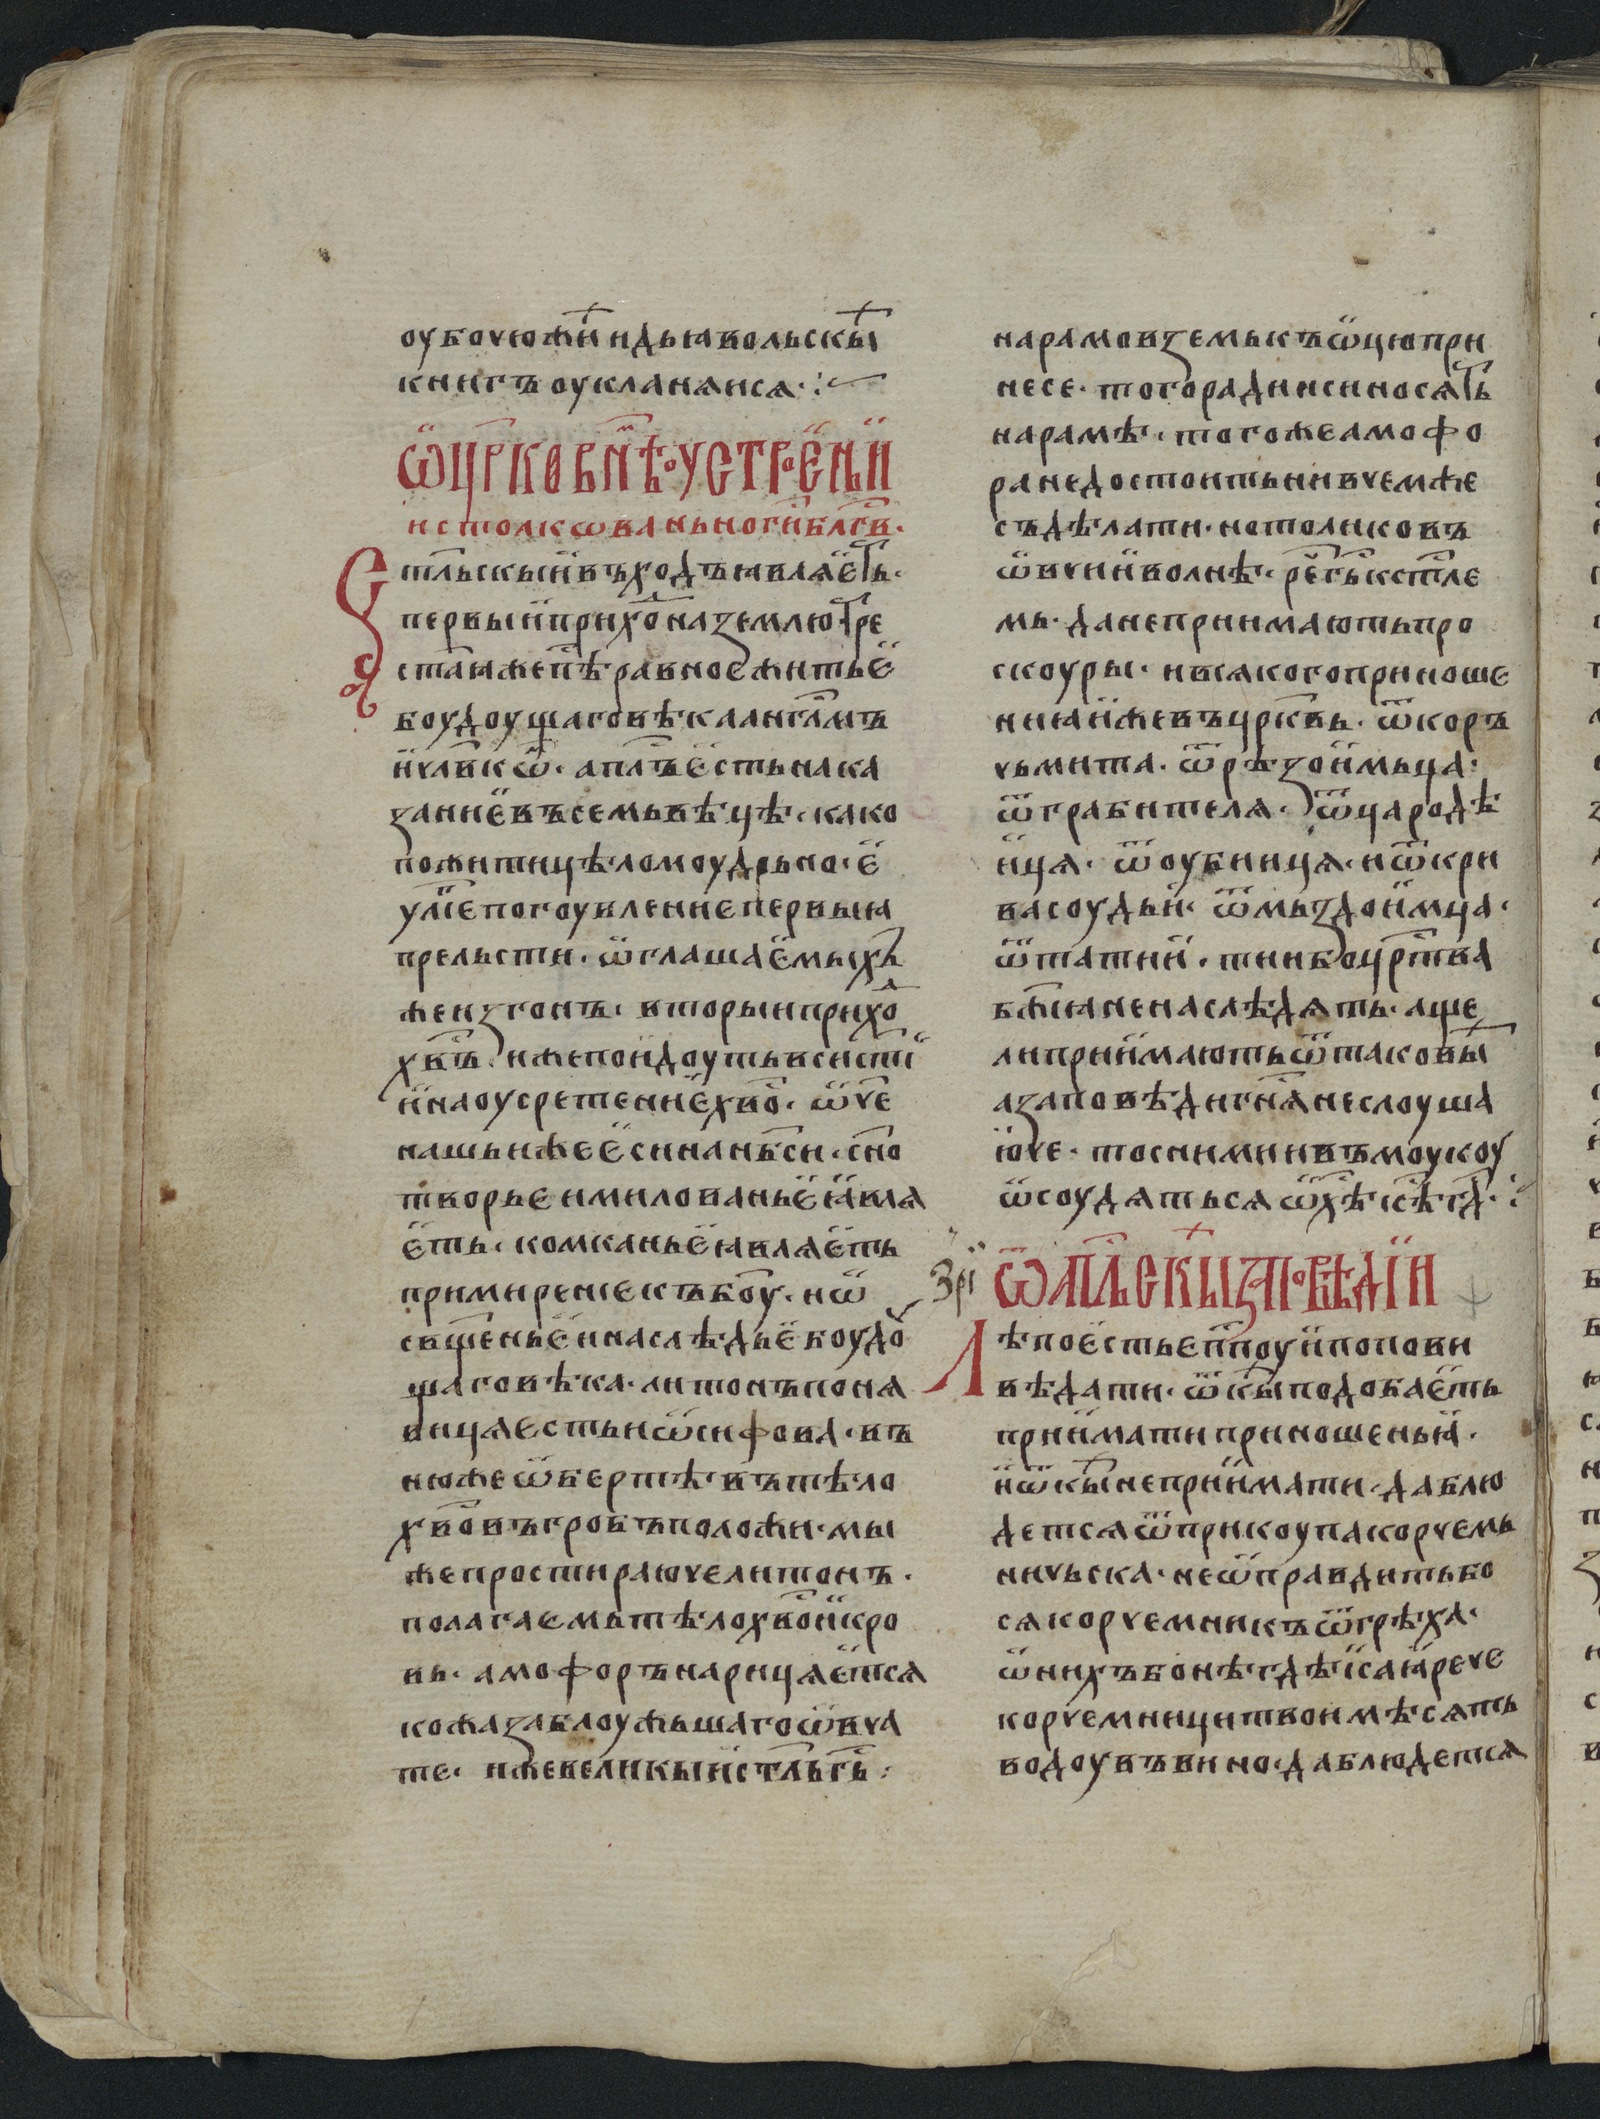 оубочюжи҇и дьꙗвольскы҇
книгъ оукланѧисѧ·:~
Ѿ цр҃ковнѣ оустроении
и столкованьно ги҃ бл҃гви·
Ст҃льскыи въходъ ꙗвлѧет҇ь·
первыи прихо҇ на землю тре
ст҃аꙗже пѣ равно е житьѥ
боудоущаго вѣка анг҃лмъ
и чл҃вкѡ҇· ап҃лъ есть нака
зание въ семь вѣцѣ· како
пожити цѣломоудрьно· е
ул҃ие погоубление первыꙗ
прельсти· ѡглашаемыхъ
же изгонъ· вторыи прихо҇
хв҃ъ иже поидоуть вси ст҃ии
и на оусретение хв҃о· ѿче
нашь иже еси на нб҃си· сн҃о
творье и милованье ꙗвлѧ
еть· комканье ꙗвлѧеть
примирение къ бо҃у· и ѡ
свщ҃енье и наслѣдье боудо҇
щаго вѣка· литонъ понѧ
вица есть иѡсифова· въ
нюже ѡбертѣ въ тѣло
хв҃о въ гробъ положи· мы
же простираюче литонъ·
полагаемъ тѣло хв҃о и кро
вь· амофоръ нарицѧетсѧ
кожа заблоужьшаго ѡвча
те· иже великыи ст҃ль гь҃:
на рамо вземь къ ѡц҃ю при
несе· того ради и си носѧт҇ь
на рамѣ· того же амофо
ра не достоить ни в чемже
съдѣлати· но толико въ
ѡвчии волнѣ· реч҇ гь҃ к ст҃ле
мь· да не приимають про
скоуры· и всѧкого приноше
ниꙗ иже въ цр҃квь· ѿ корь
чьмита· ѿ рѣзоимьца·
ѿ грабителѧ· ѿ чародѣ
ица· ѿ оубиица· и ѿ кри
васоудьи· ѿ мьздоимца·
ѿ татии· тии бо цр҃тва
бж҃иꙗ не наслѣдѧть· аще
ли приимають ѿ таковы҇
а заповѣди гн҃ѧ не слоуша
юче· то с ними и въ моукоу
ѡсоудѧтьсѧ ѡ х҃ѣ іс҃ѣ гд҃·:
Зри
Ѿ ап҃льскы заповѣдии
Лѣпо есть еп҃поу и попови
вѣдати· ѿ кы҇ подобаеть
приимати приношеньꙗ·
и ѿ кы҇ не приимати· да блю
детсѧ ѿ прикоупа корчемь
ничьска· не ѡправдить бо
сѧ корчемникъ ѿ грѣха·
ѡ нихъ бо нѣгдѣ ісаꙗ рече
корчемници твои мѣсѧть
водоу въ вино· да блюдетсѧ